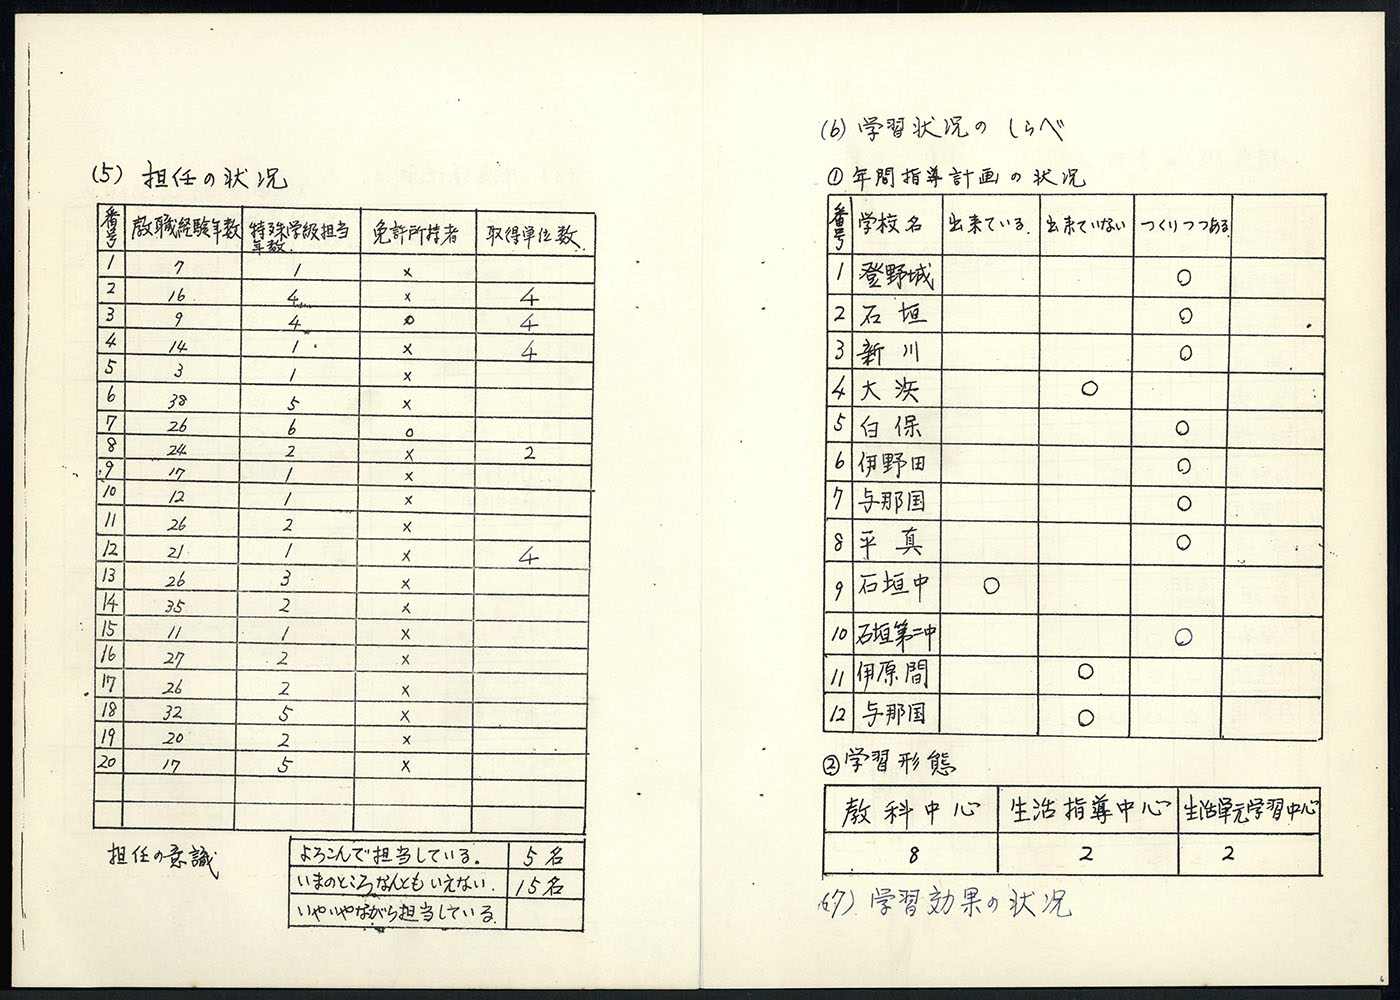 (5) 担任の状況
番号 教職経験年数 特殊学級担当年数 免許所持者 取得単位数
1 7 1 ×
2 16 4 × 4
3 9 4 ○ 4
4 14 1 × 4
5 3 1 ×
6 38 5 ×
7 26 6 ○
8 24 2 × 2
9 17 1 ×
10 12 1 ×
11 26 2 ×
12 21 1 × 4
13 26 3 ×
14 35 2 ×
15 11 1 ×
16 27 2 ×
17 26 2 ×
18 32 5 ×
19 20 2 ×
20 17 5 ×
担任の意識
よろこんで担当している。 5名
いまのところなんともいえない。 15名
いやいやながら担当している。
(6) 学習状況のしらべ
① 年間指導計画の状況
番号 学校名 出来ている。 出来ていない つくりつつある
1 登野城 ○
2 石垣 ○
3 新川 ○
4 大浜 ○
5 白保 ○
6 伊野田 ○
7 与那国 ○
8 平真 ○
9 石垣中 ○
10 石垣第二中 ○
11 伊原間 ○
12 与那国 ○
② 学習形態
教科中心 生活指導中心 生活単元学習中心
8 2 2
(7) 学習効果の状況